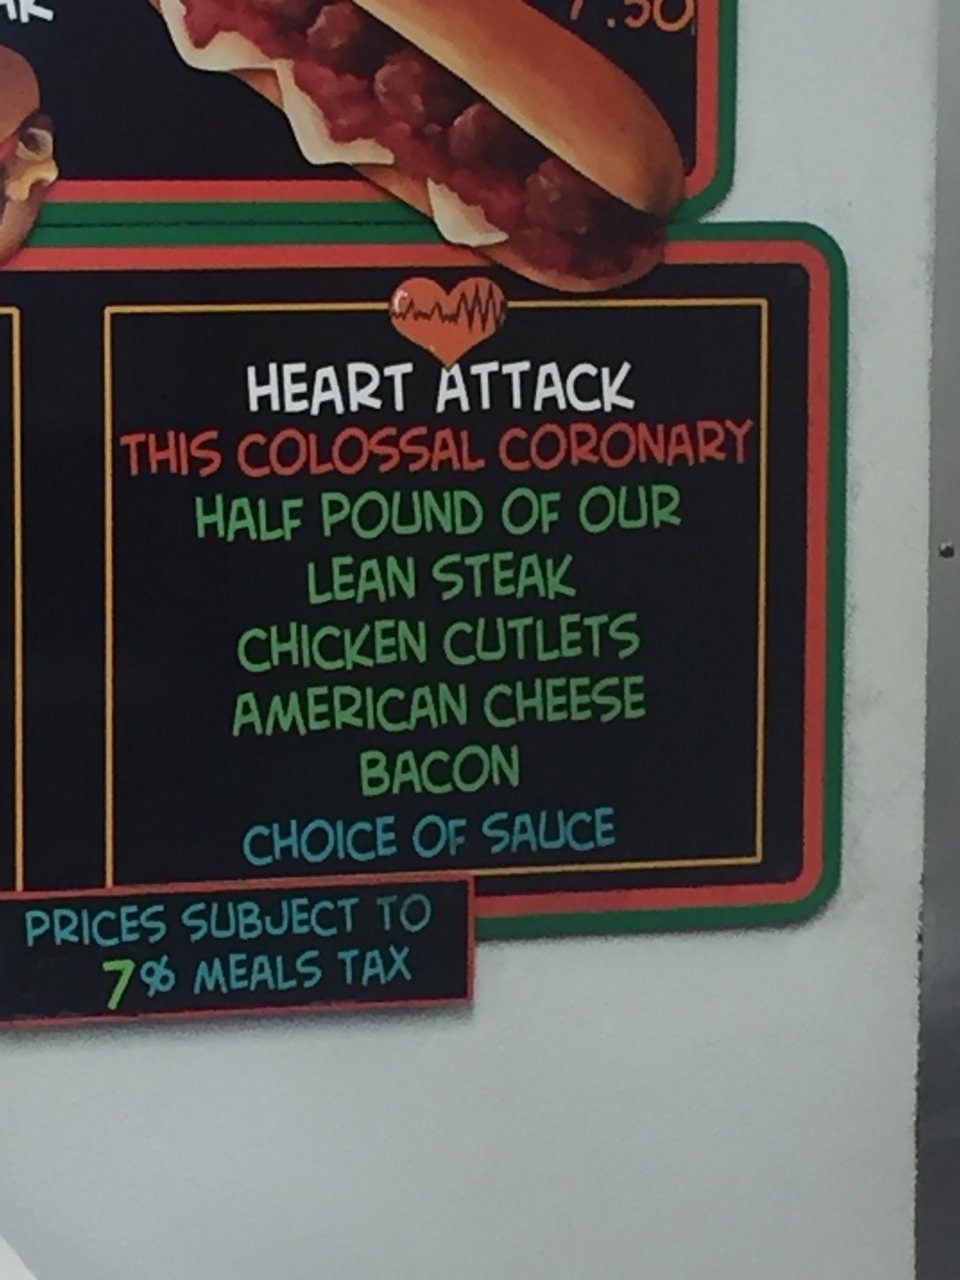 HEART ATTACK
THIS COLOSSAL CORONARY
HALF POUND OF OUR
LEAN STEAK
CHICKEN CUTLETS
AMERICAN CHEESE
BACON
CHOICE OF SAUCE
PRICES SUBJECT TO
7% MEALS TAX